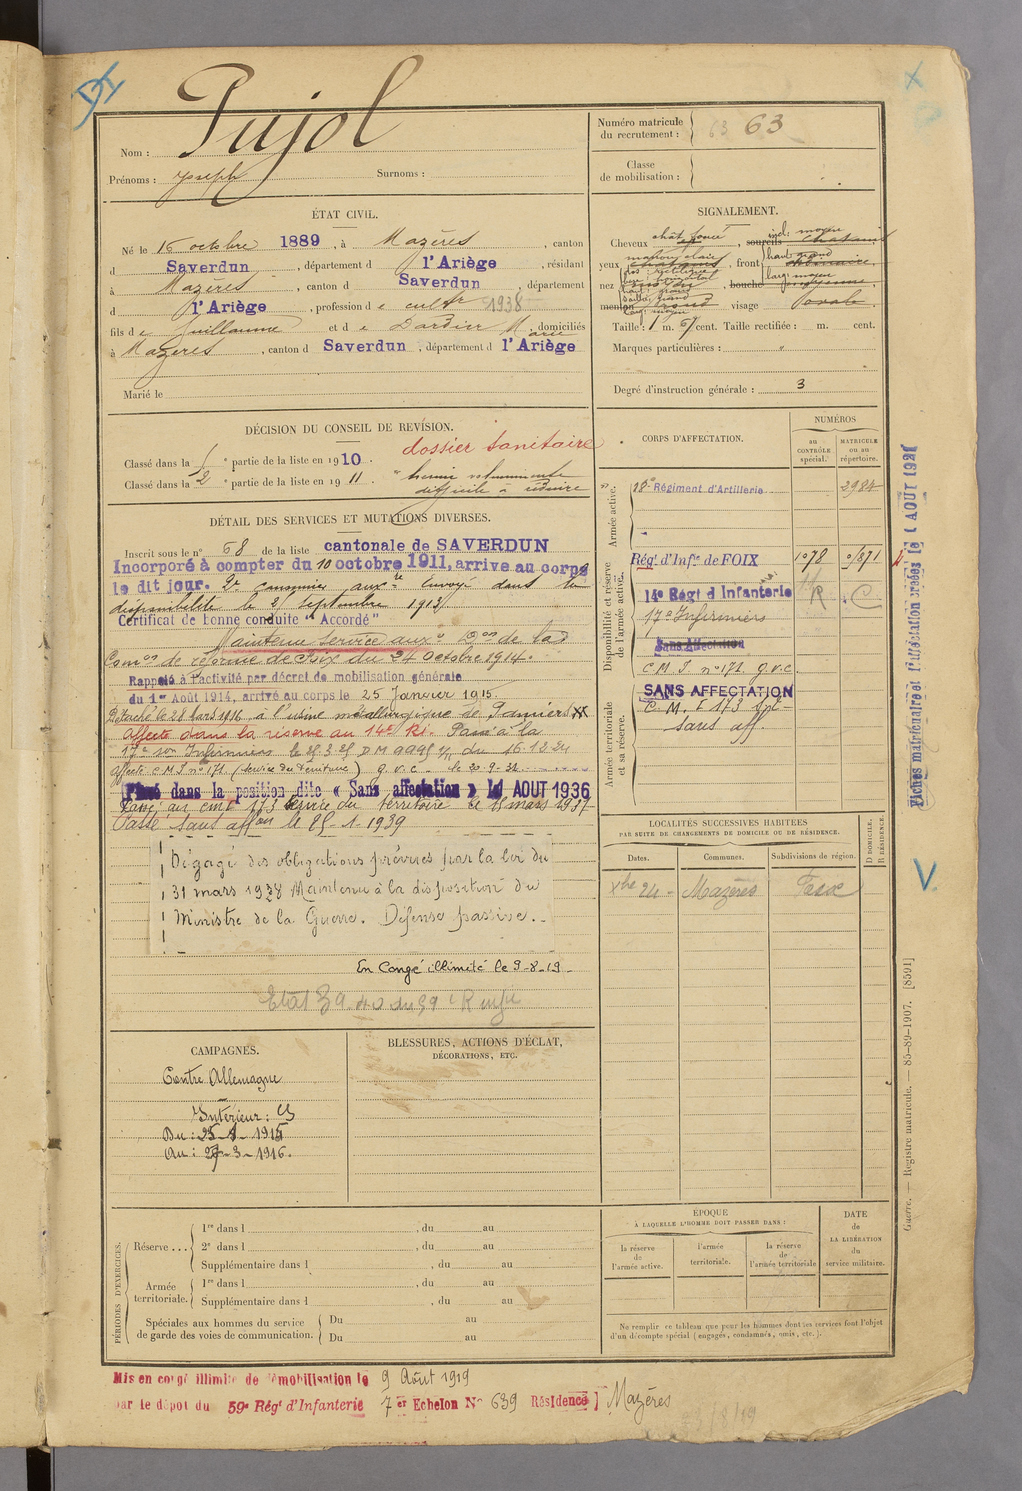 Pujol
Nom :
Prénoms : Joseph Surnoms :
Numéro matricule
du recrutement : 63 63
Classe
de mobilisation :
ÉTAT CIVIL.
Né le 16 octobre 1889, à Mazères, canton
d Saverdun, département d l'Ariège, résidant
à Mazères, canton d Saverdun, département
d l'Ariège, profession de cultr 1938
fils de Guillaume et de Dardier Marie, domiciliés
à Mazères, canton d Saverdun, département d l'Ariège
Marié le
SIGNALEMENT.
Cheveux chât foncé, sourcils châtains
incl: moyen
yeux marron clair, front haut: grand
larg: moyen
nez dos: rectiligne, bouche moyenne,
menton rond visage ovale
Taille: 1 m. 67 cent. Taille rectifiée : m. cent.
Marques particulières : "
Degré d'instruction générale : 3
DÉCISION DU CONSEIL DE REVISION.
dossier sanitaire
Classé dans la 1e partie de la liste en 1910.
Classé dans la 2e partie de la liste en 1911.
hernie volumineuse
difficile à réduire
DÉTAIL DES SERVICES ET MUTATIONS DIVERSES.
Inscrit sous le n° 68 de la liste cantonale de SAVERDUN
Incorporé à compter du 10 octobre 1911, arrive au corps
le dit jour. 2e canonnier auxre Envoyé dans la
disponibilité le 27 septembre 1913
Certificat de bonne conduite "Accordé"
Maintenu service auxre Don de la
Comon de réforme de Foix du 24 octobre 1914.
Rappelé à l'activité par décret de mobilisation générale
du 1er Août 1914, arrivé au corps le 25 Janvier 1915.
Détaché le 28 Mars 1916 à l'usine métallurgique de Pamiers
Affecté dans la réserve au 14e RI. Passé à la
17e son Infirmiers le 25.3.25 DM 9995 7/4 du 16.12.24
Affecté C.M.I n° 171 (Service du Territoire) g.v.c. le 20-9-31
Placé dans la position dite « Sans affectation » le 1 AOUT 1936
Passé au cmI 173 service du territoire le 15 mars 1937
Passé sans affon le 25-1-1939
Dégagé des obligations prévues par la loi du
31 mars 1928 Maintenu à la disposition du
Ministre de la Guerre. Défense passive.
En Congé illimité le 9-8-19
CORPS D'AFFECTATION.
NUMÉROS
au
CONTRÔLE
spécial.
MATRICULE
ou au
répertoire.
Armée active.
18e Régiment d'Artillerie 2984
Disponibilité et réserve
de l'armée active.
Régt d'Infie de FOIX 1078 0/871
14e Régt d'Infanterie R C
17e Infirmiers
Sans Affectation
C.M.I n° 171 g.v.c
SANS AFFECTATION
C.M.I 173
Sans aff.
Armée territoriale
et sa réserve.
LOCALITÉS SUCCESSIVES HABITÉES
PAR SUITE DE CHANGEMENTS DE DOMICILE OU DE RÉSIDENCE.
Dates. Communes. Subdivisions de région. D DOMICILE. R RÉSIDENCE.
Xbre 24 Mazères Foix
CAMPAGNES.
Contre Allemagne
Intérieur: CS
Du: 25-1-1915
Au: 27-3-1916.
BLESSURES, ACTIONS D'ÉCLAT,
DÉCORATIONS, ETC.
PÉRIODES D'EXERCICES.
Réserve ...
1re dans l , du au
2e dans l , du au
Supplémentaire dans l , du au
Armée
territoriale.
1re dans l , du au
Supplémentaire dans l , du au
Spéciales aux hommes du service
de garde des voies de communication.
Du au
Du au
ÉPOQUE
À LAQUELLE L'HOMME DOIT PASSER DANS :
la réserve
de
l'armée active.
l'armée
territoriale.
la réserve
de
l'armée territoriale
DATE
de
LA LIBÉRATION
du
service militaire.
Ne remplir ce tableau que pour les hommes dont les services font l'objet
d'un décompte spécial (engagés, condamnés, omis, etc.).
Guerre. — Registre matricule. — 85-89-1907. [8591]
Mis en congé illimité de démobilisation le 9 Août 1919
par le dépôt du 59e Régt d'Infanterie 7er Echelon N° 639 Résidence Mazères